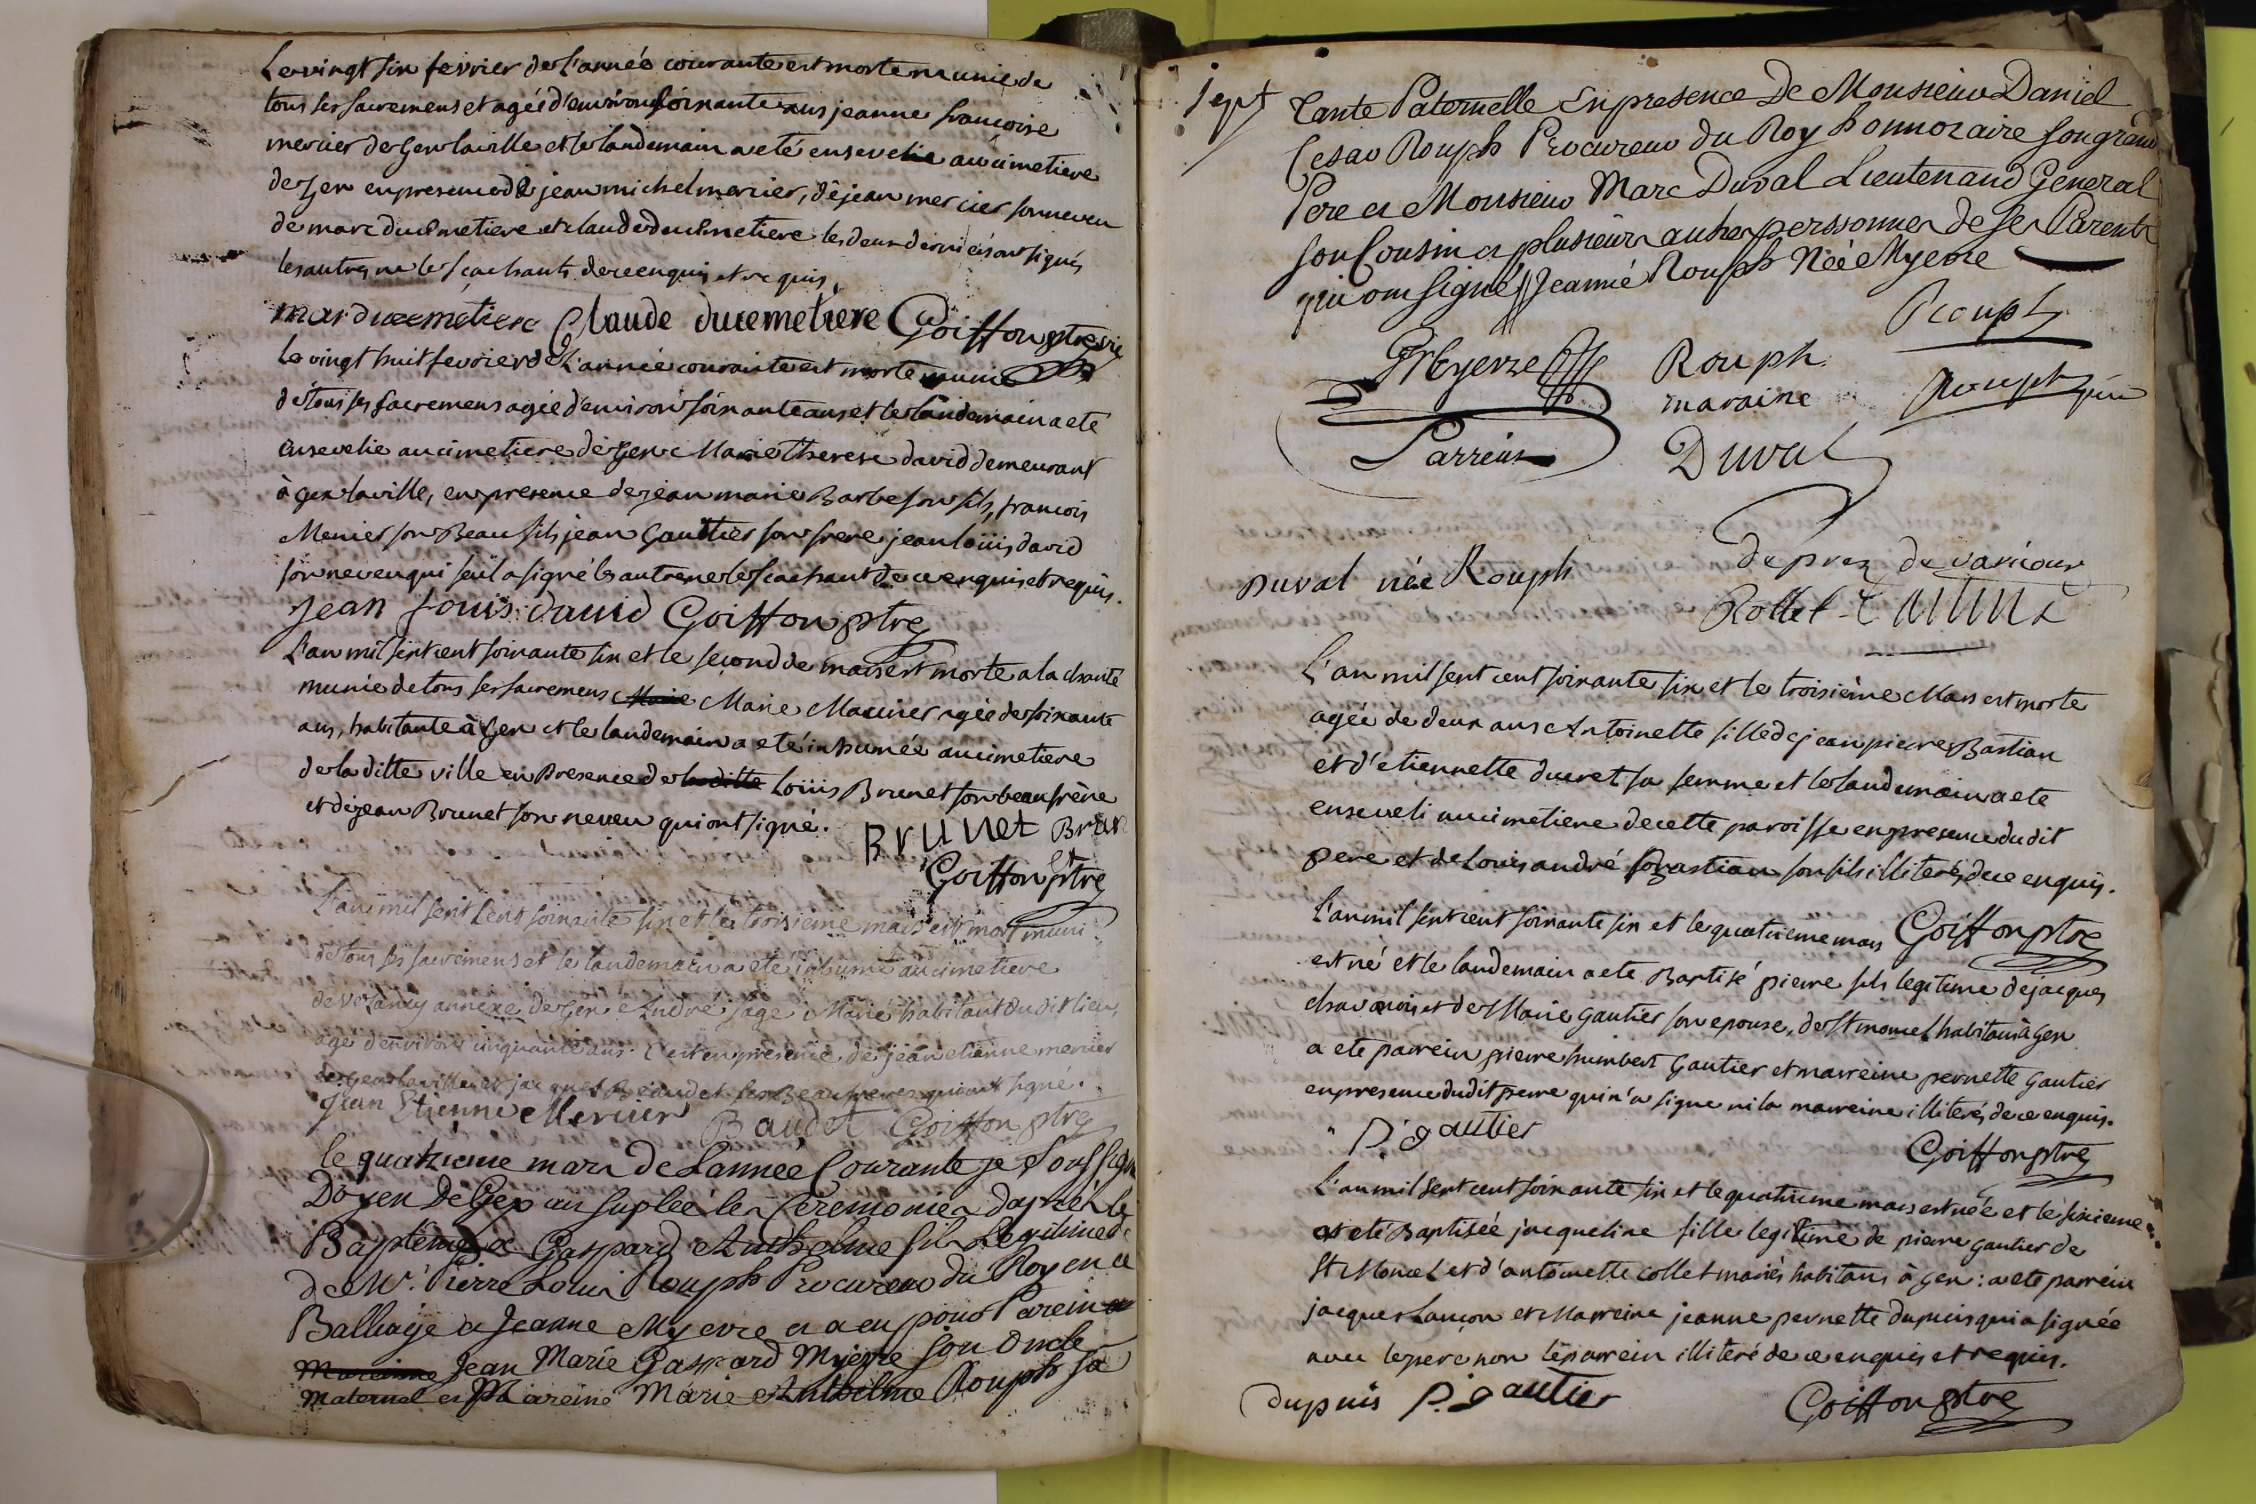 Le vingt six fevrier de l'année courante est morte munie de
tous ses sacremens et agée d'environ soixante ans jeanne françoise
mercier de Gex la ville et le landemain a eté ensevelie au cimetiere
de Gex en presence de jean michel mercier, de jean mercier son neveu
de marc ducimetiere et claude ducimetiere les deux derniers ont signés
les autres ne le sçachants de ce enquis et requis.
marc ducemetiere Claude ducemetiere Goiffon ptre vic
Le vingt huit fevrier de l'année courante est morte munie
de tous ses sacremens agée d'environ soixante ans et le landemain a eté
ensevelie au cimetiere de Gex Marie Therese david demeurant
à gex la ville, en presence de jean marie Barbe son fils, francois
Menier son Beau fils jean Gauttier son frere jean loüis david
son neveu qui seul a signé les autres ne le scachant de ce enquis et requis.
jean louis david Goiffon ptre
L'an mil sept cent soixante six et le second de mars est morte a la charité
munie de tous ses sacremens Marie Marie Maunier agée de soixante
ans, habitante à Gex et le landemain a eté inhumée au cimetiere
de la ditte ville en Presence de la ditte Loüis Brunet son beau frère
et de jean Brunet son neveu qui ont signé.
Brunet Brun
Goiffon ptre
L'an mil sept cent soixante six et le troisieme mars est mort muni
de tous ses sacremens et le landemain a eté inhumé au cimetiere
de volancy annexe de Gex André sage Marié habitant du dit lieu
agé d'environ cinquante ans. C'est en presence de jean etienne mercier
de Gex la ville et jacques Beaudet ses Beaufreres qui ont signé.
Jean Etienne Mercier Baudet Goiffon ptre
le quatrieme mars de Lannée Courante je soussigné
Doyen De Gex ais suplée les Ceremonies daprés le
Baptême a Gaspard Anthelme fils Legitime de
de Mr. Pierre Louis Rouph Procureur du Roy en ce
Balliage et Jeanne Myevre et a eu pour Parein
Mareinne Jean Marie Gaspard Myevre son Oncle
Maternel et Mareine Marie Anthelme Rouph sa
sept
Tante Paternelle en presence De Monsieur Daniel
Cesar Rouph Procureur du Roy honnoraire son grand
Pere et Monsieur Marc Duval Lieutenand General
son Cousin et plusieurs autres perssonnes de ses Parents
qui ont signé Jeanne Rouph Née Myevre
Rouph
Myevre Rouph Rouph père
Parrein maraine
Duval
duprez de varicour
Duval née Rouph
Rollet
L'an mil sept cent soixante six et le troisième Mars est morte
agée de deux ans Antoinette fille de jean pierre Bastian
et d'etiennette ducret sa femme et le landemain a eté
enseveli au cimetiere de cette paroisse en presence du dit
pere et de Louis andré Bastian son fils illiterés de ce enquis.
L'an mil sept cent soixante six et le quatrieme mars Goiffon ptre
est né et le landemain a eté Baptisé pierre fils legitime de jacques
chavanoist et de Marie gautier son epouse, de St moncel habitans à Gex
a eté parrein pierre humbert Gautier et marreine pernette gautier
en presence du dit pere qui n'a signe ni la marreine illiterés de ce enquis.
P. gautier
Goiffon ptre
L'an mil sept cent soixante six et le quatrieme mars est née et le sixieme
a eté Baptisée jacqueline fille legitime de pierre gautier de
St Moncel et d'antoinette collet mariés habitans à gex: a eté parrein
jacques Lançon et Marreine jeanne pernette dupuis qui a signée
avec le pere non le parrein illiteré de ce enquis et requis.
dupuis P. gautier Goiffon ptre